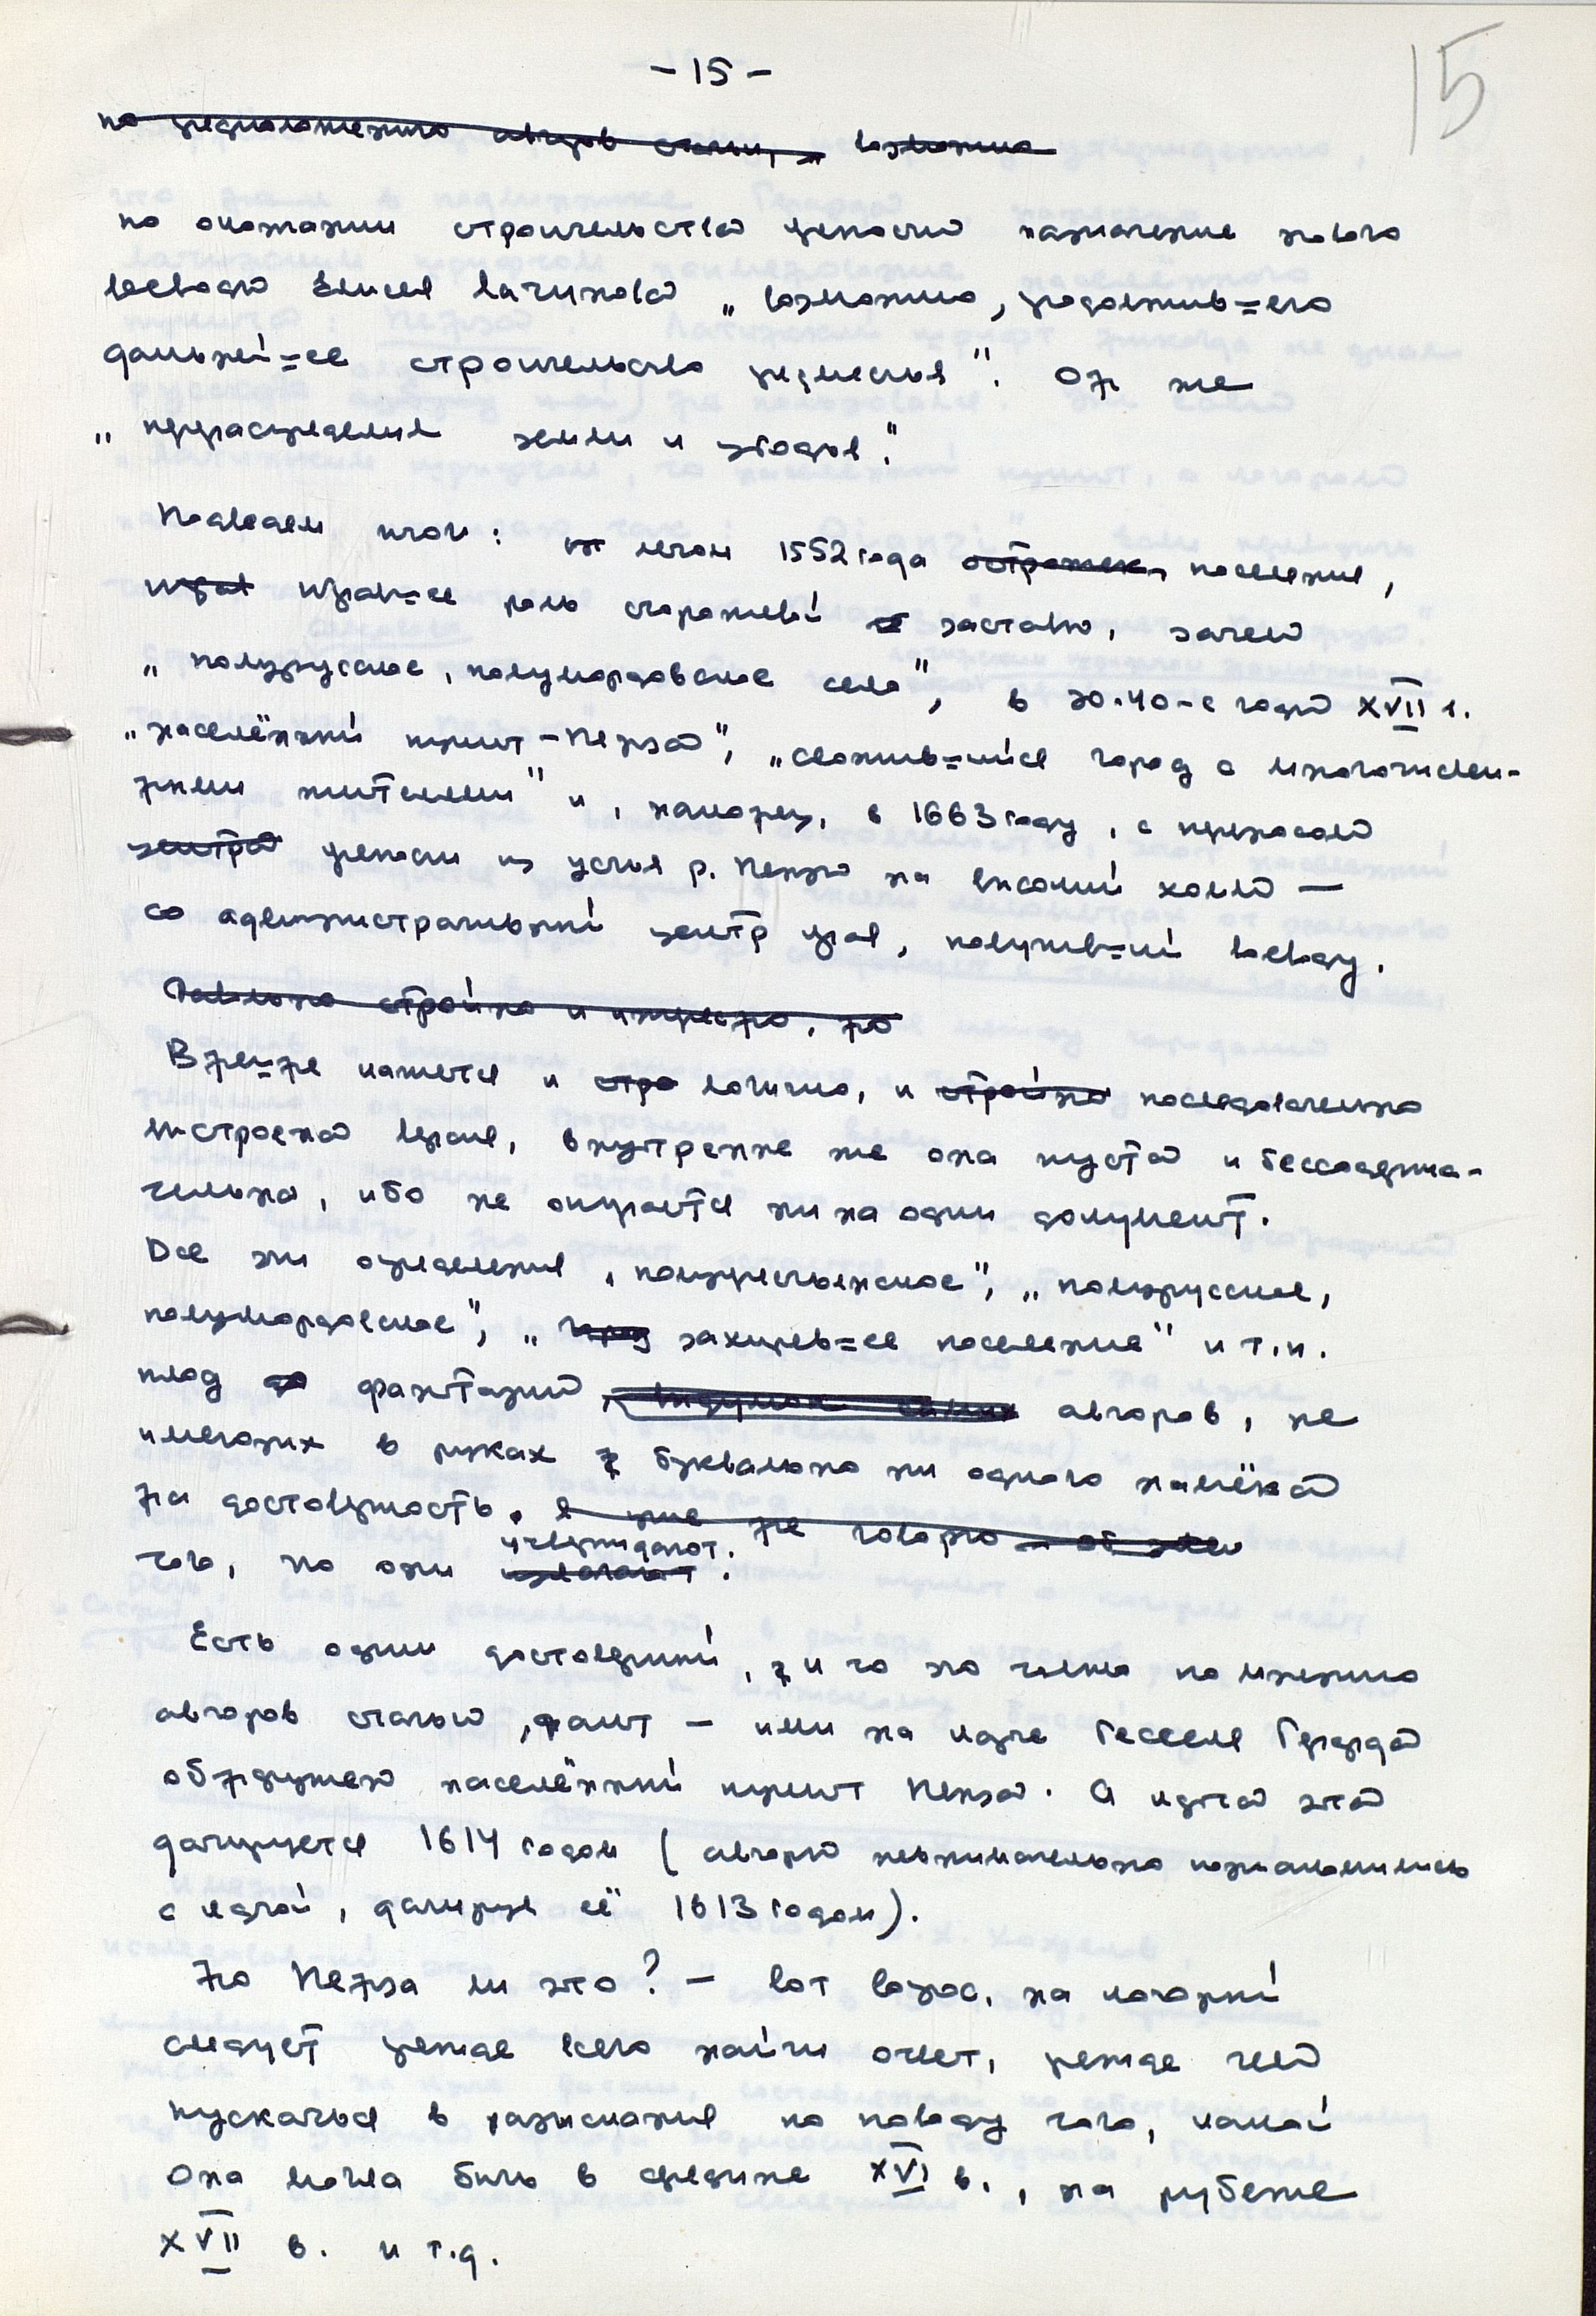 - 15 -
15
по предположению авторов статьи, и возможно
по окончании строительства крепости назначение нового
воеводы Елисея Лачинова „возможно, продолжившего
дальнейшее строительство крепости". Он же
„перераспределил земли и угодья".
Подведем итог: летом 1552 года острожек, поселение,
играв игравшее роль сторожевой заставы, затем
„полурусское, полумордовское село", в 30-40-е годы XVII в.
„населённый пункт - Пенза", „сложившийся город с многочислен-
ными жителями" и, наконец, в 1663 году, с переносом
центра крепости из устья р. Пензы на высокий холм —
со административный центр края, получивший воеводу.
Довольно стройно и интересно, но
Внешне кажется и стро логично, и стройно последовательно
выстроена версия, внутренне же она пуста и бессодержа-
тельна, ибо не опирается ни на один документ.
Все эти определения „полукрестьянское", „полурусское,
полумордовское", „город захиревшее поселение" и т.п.
плод фантазий выдумок самих авторов, не
имеющих в руках буквально ни одного намёка
на достоверность. Я уже не говорю об этом
того, что они излагают утверждают.
Есть один достоверный, и то это только по мнению
авторов статьи, факт — ими на карте Гесселя Герарда
обнаружен населённый пункт Пенза. А карта эта
датируется 1614 годом (авторы невнимательно познакомились
с картой, датируя её 1613 годом).
Но Пенза ли это? — Вот вопрос, на который
следует прежде всего найти ответ, прежде чем
пускаться в разыскания по поводу того, какой
она могла быть в средине XVI в., на рубеже
XVII в. и т.д.